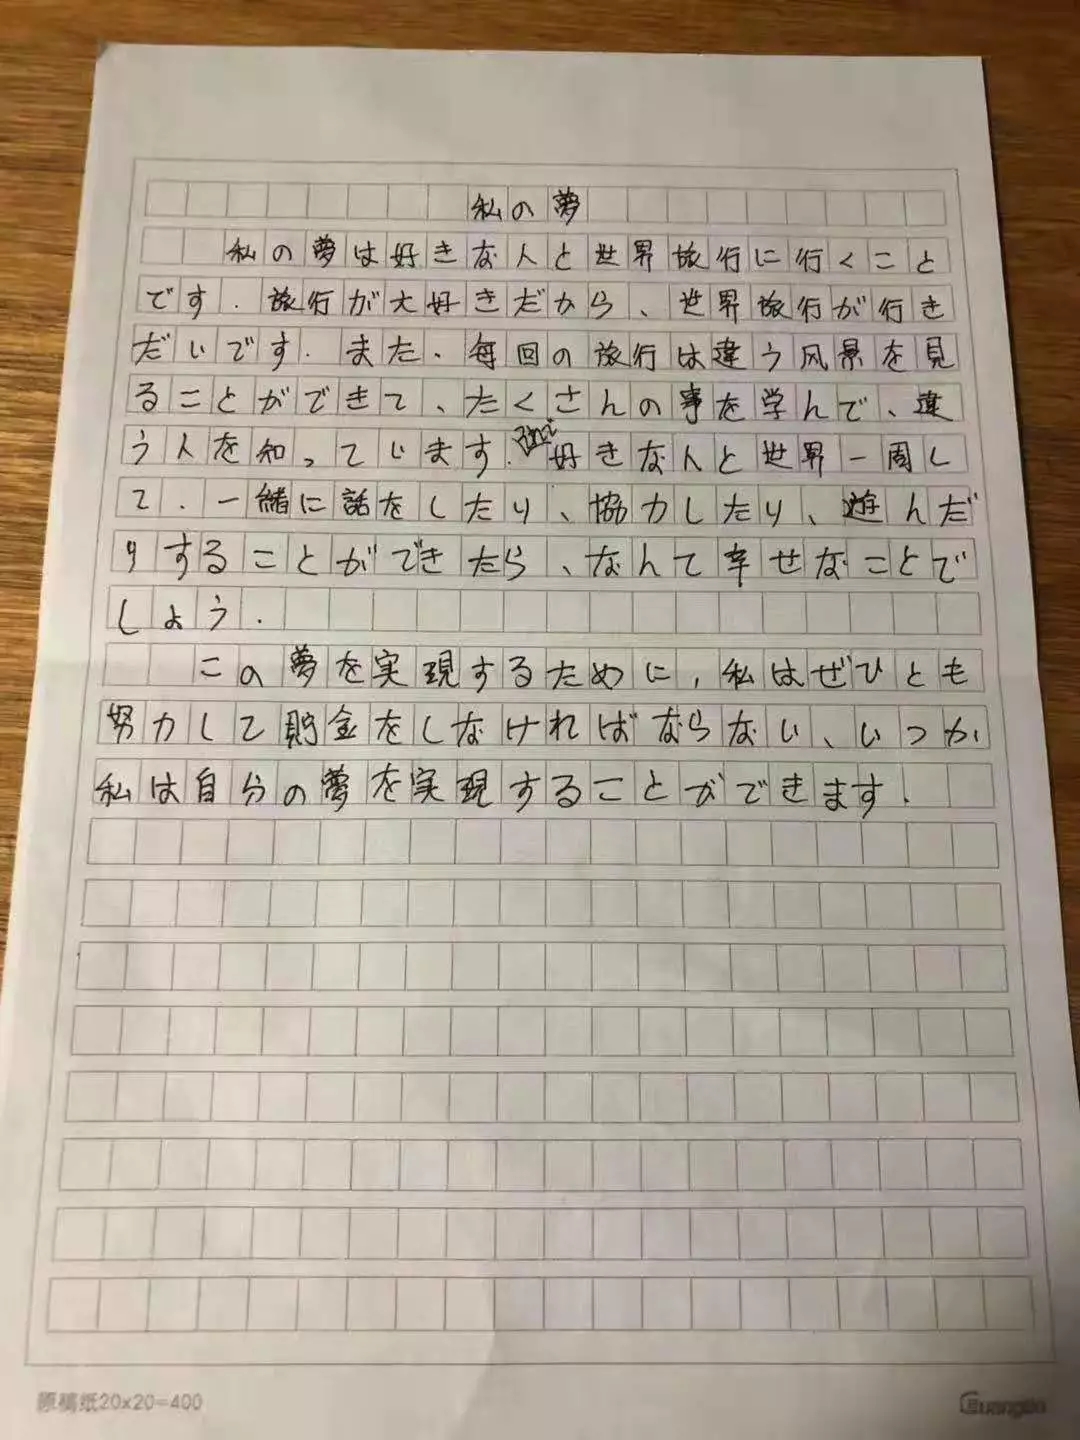 私の夢
私の夢は好きな人と世界旅行に行くこと
です.旅行が大好きだから、世界旅行が行き
だいです.また、毎回の旅行は違う风景を見
ることができて、たくさんの事を学んで、違
う人を知っています.好きな人と世界一周し
て.一緒に話をしたり、協力したり、遊んだ
りすることができたら、なんて幸せなことで
しょう.
この夢を实現するために,私はぜひとも
努力して貯金をしなければならない、いつか
私は自分の夢を实現することができます.
原稿紙20×20=400